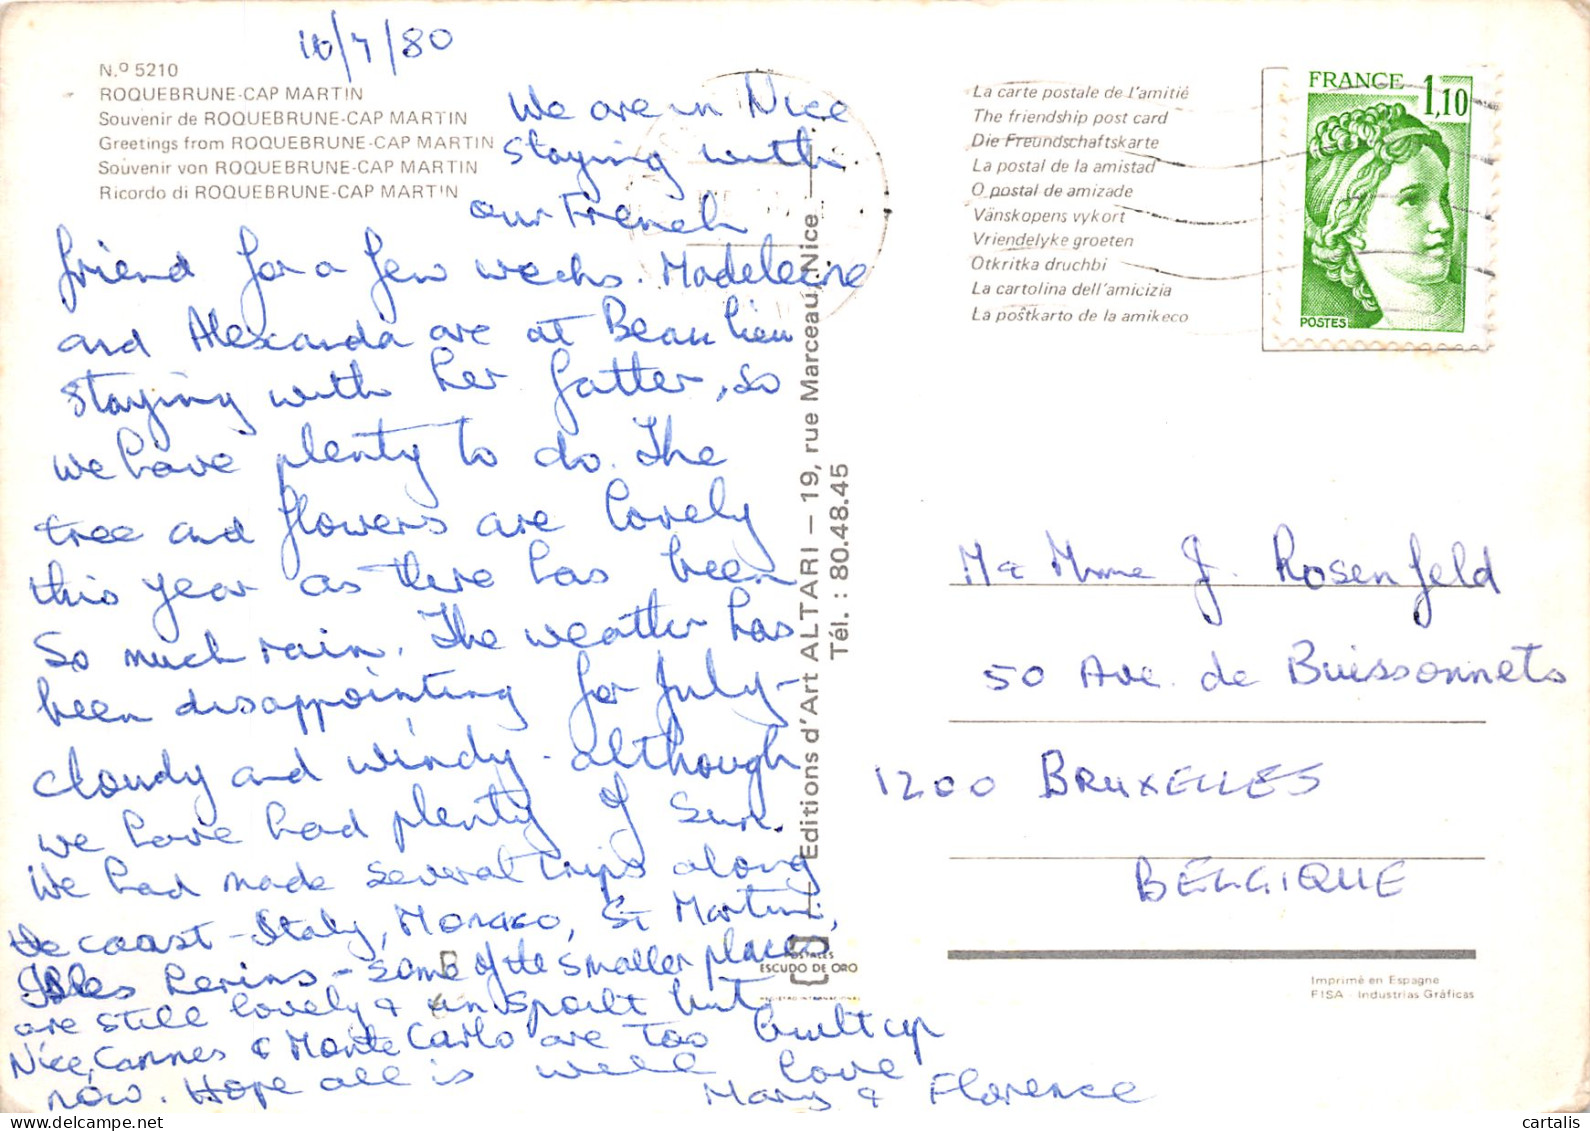 16/7/80
N.º 5210
ROQUEBRUNE-CAP MARTIN
Souvenir de ROQUEBRUNE-CAP MARTIN
Greetings from ROQUEBRUNE-CAP MARTIN
Souvenir von ROQUEBRUNE-CAP MARTIN
Ricordo di ROQUEBRUNE-CAP MARTIN
We are in Nice
staying with
our French
friend for a few weeks. Madeleine
and Alexanda are at Beaulieu
staying with her father, so
we have plenty to do. The
tree and flowers are lovely
this year as there has been
so much rain. The weather has
been disappointing for July -
cloudy and windy - although
we have had plenty of sun.
We had made several trips along
the coast - Italy, Monaco, St Martin,
Isles Lerins - some of the smaller places
are still lovely & unspoilt but
Nice, Cannes & Monte Carlo are too built up
now. Hope all is well love
Mary & Florence
Editions d'Art ALTARI – 19, rue Marceau, Nice
Tél. : 80.48.45
POSTALES
ESCUDO DE ORO
La carte postale de l'amitié
The friendship post card
Die Freundschaftskarte
La postal de la amistad
O postal de amizade
Vänskopens vykort
Vriendelyke groeten
Otkritka druchbi
La cartolina dell'amicizia
La poŝtkarto de la amikeco
FRANCE
1,10
POSTES
M & Mme J. Rosenfeld
50 Ave. de Buissonnets
1200 BRUXELLES
BELGIQUE
Imprimé en Espagne
FISA - Industrias Gráficas
cartalis